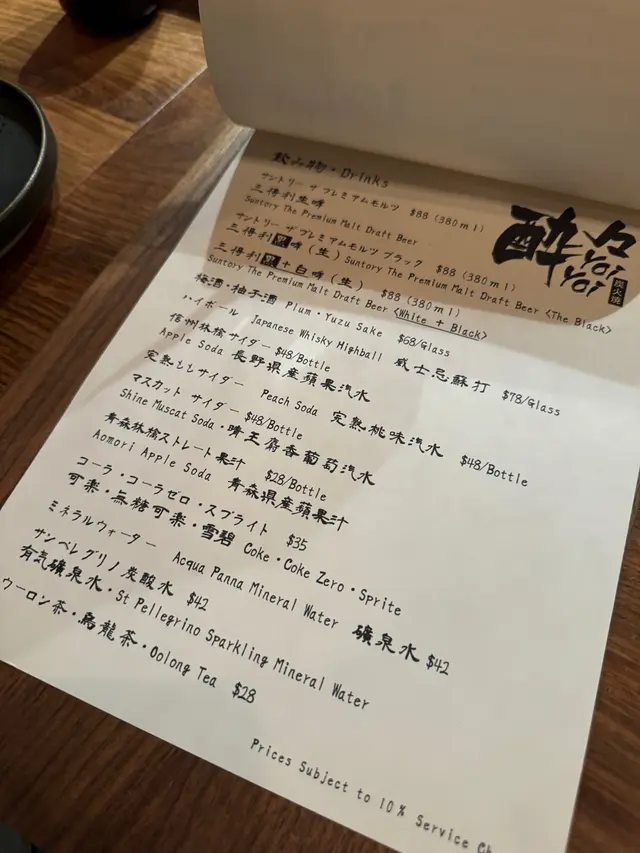 飲み物・Drinks
サントリー ザ プレミアムモルツ $88 (380ml)
三得利生啤
Suntory The Premium Malt Draft Beer
サントリー ザ プレミアムモルツ ブラック $88 (380ml)
三得利黑啤(生) Suntory The Premium Malt Draft Beer <The Black>
三得利黑+白啤(生) $88 (380ml)
Suntory The Premium Malt Draft Beer <White + Black>
梅酒・柚子酒 Plum・Yuzu Sake $68/Glass
ハイボール Japanese Whisky Highball 威士忌蘇打 $78/Glass
信州林檎サイダー $48/Bottle
Apple Soda 長野県産蘋果汽水
完熟ももサイダー Peach Soda 完熟桃味汽水 $48/Bottle
マスカット サイダー $48/Bottle
Shine Muscat Soda・晴王麝香葡萄汽水
青森林檎ストレート果汁 $28/Bottle
Aomori Apple Soda 青森県産蘋果汁
コーラ・コーラゼロ・スプライト $35
可樂・無糖可樂・雪碧 Coke・Coke Zero・Sprite
ミネラルウォーター Acqua Panna Mineral Water 礦泉水 $42
サンペレグリノ炭酸水 $42
有気礦泉水・St Pellegrino Sparkling Mineral Water
ウーロン茶・烏龍茶・Oolong Tea $28
Prices Subject to 10% Service Ch
酔々
Yoi
Yoi
炭火燒